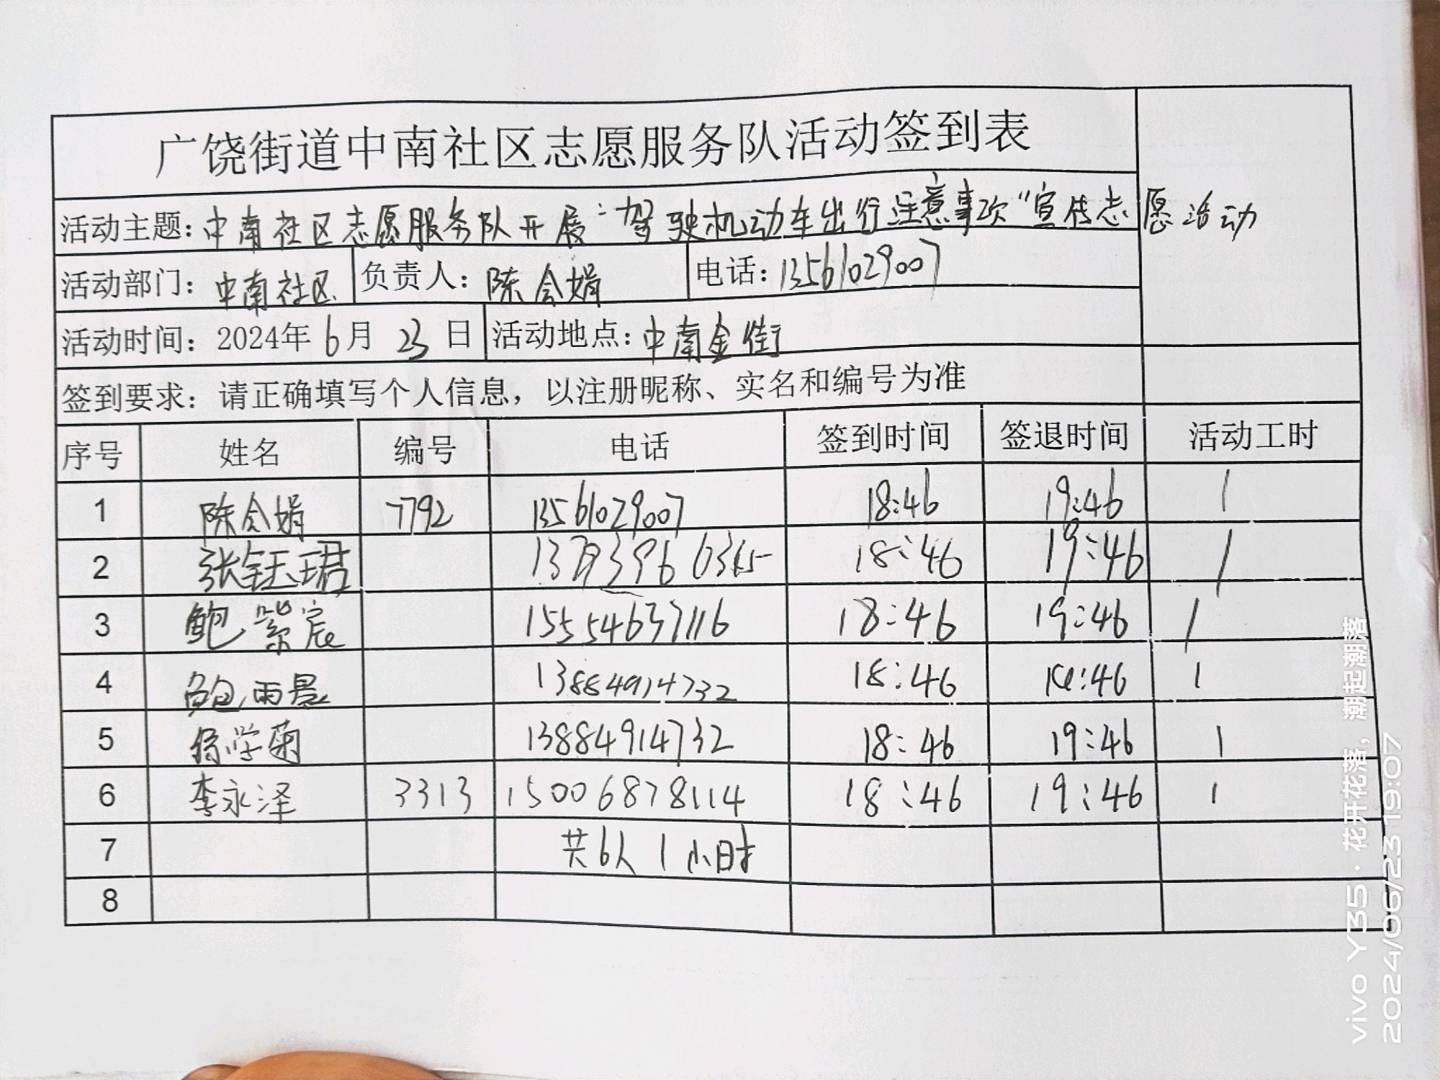 广饶街道中南社区志愿服务队活动签到表
活动主题：中南社区志愿服务队开展“驾驶机动车出行注意事项”宣传志愿活动
活动部门：中南社区 负责人：陈会娟 电话：13561029007
活动时间：2024年6月23日 活动地点：中南金街
签到要求：请正确填写个人信息，以注册昵称、实名和编号为准
序号 姓名 编号 电话 签到时间 签退时间 活动工时
1 陈会娟 7792 13561029007 18:46 19:46 1
2 张钰珺 18:46 19:46 1
3 鲍紫宸 15554637116 18:46 19:46 1
4 鲍雨景 13884914732 18:46 19:46 1
5 徐学菊 13884914732 18:46 19:46 1
6 李永泽 3313 15006878114 18:46 19:46 1
7 共6人1小时
8
vivo Y35 · 花开花落，潮起潮落
2024/06/23 19:07